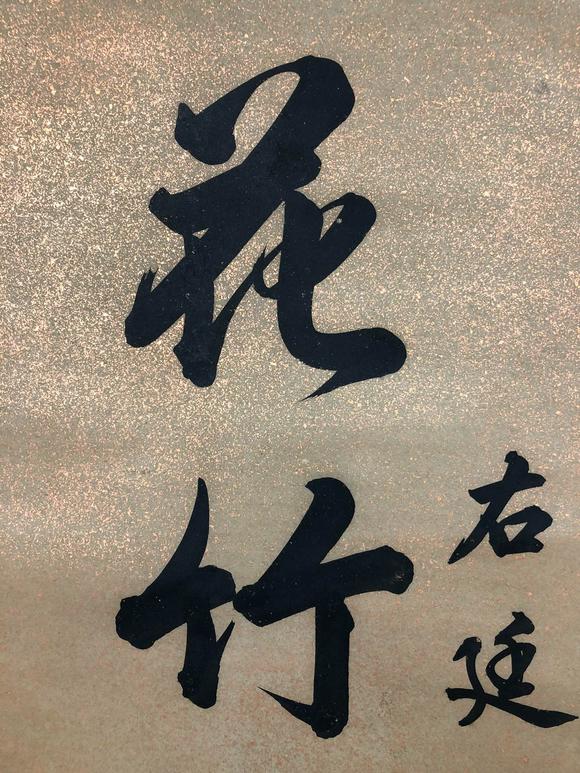 右廷
花竹